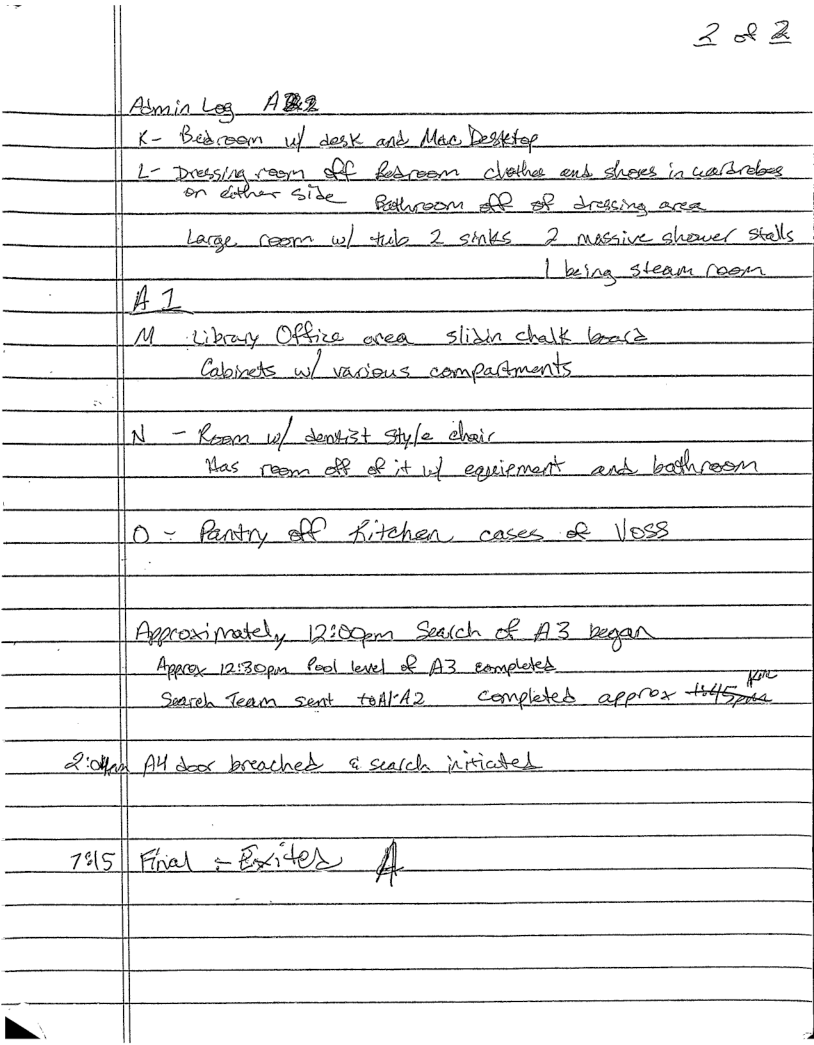 2 of 2
Admin Log A2
K- Bedroom w/ desk and Mac Desktop
L- Dressing room off Bedroom clothes and shoes in wardrobes
on either side Bathroom off of dressing area
Large room w/ tub 2 sinks 2 massive shower stalls
1 being steam room
A 1
M Library Office area slidin chalk board
Cabinets w/ various compartments
N - Room w/ dentist style chair
Has room off of it w/ equipment and bathroom
O - Pantry off Kitchen cases of Voss
Approximately 12:00pm Search of A3 began
Approx 12:30pm Pool level of A3 completed
Search Team sent to A1-A2 completed approx
A4 door breached & search initiated
7:15 Final - Exited A